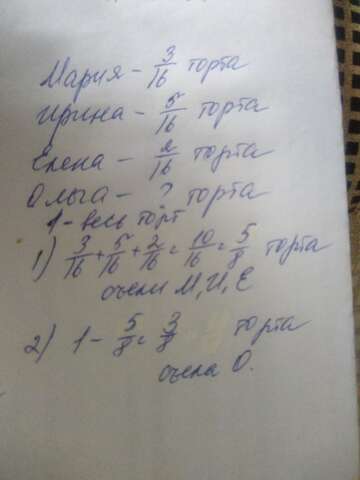 Мария - 3/16 торта
Ирина - 5/16 торта
Елена - 2/16 торта
Ольга - ? торта
1 - весь торт
1) 3/16 + 5/16 + 2/16 = 10/16 = 5/8 торта
съели М, И, Е
2) 1 - 5/8 = 3/8 торта
съела О.